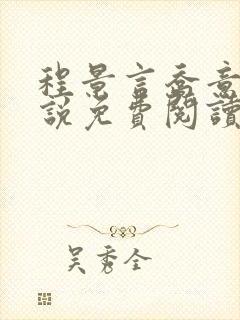 程景言喬意
說免費閱讀
吳秀全